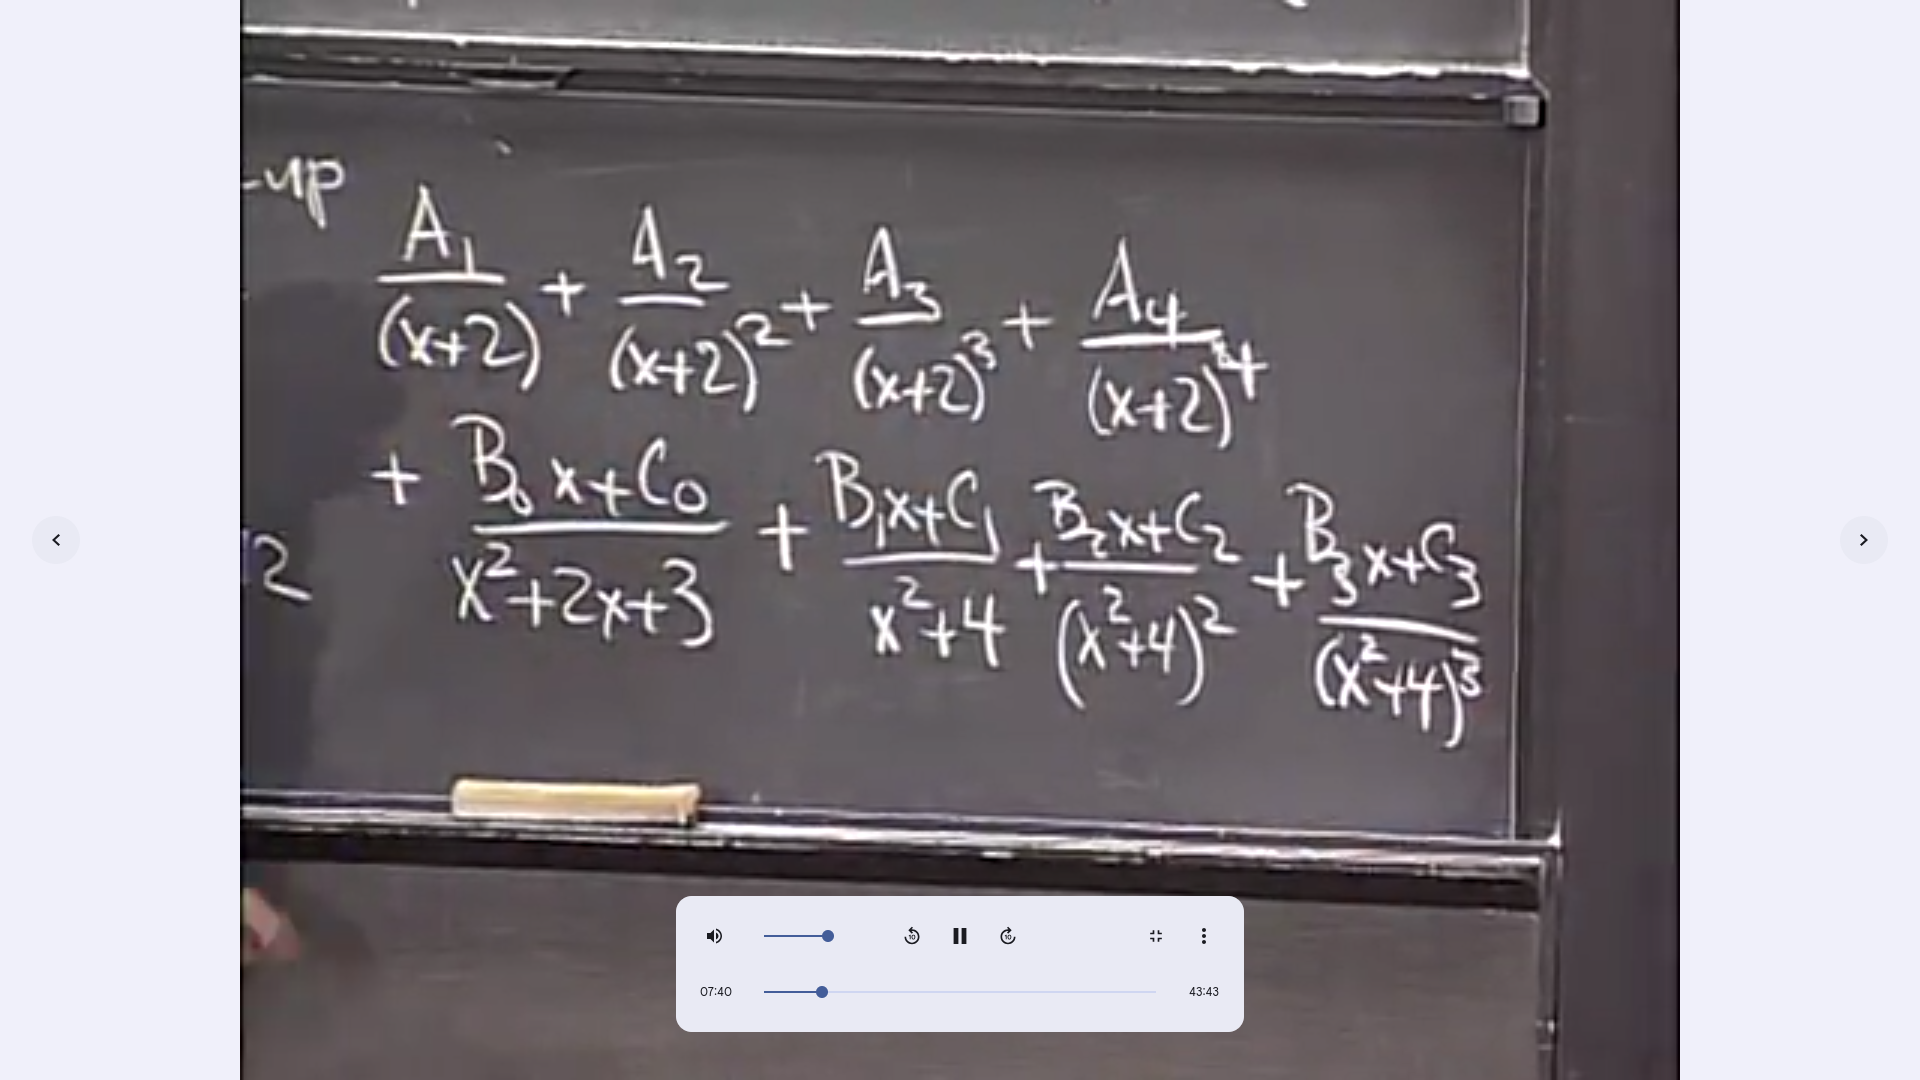 -up
A₁/(x+2) + A₂/(x+2)² + A₃/(x+2)³ + A₄/(x+2)⁴
+ (B₀x+C₀)/(x²+2x+3) + (B₁x+C₁)/(x²+4) + (B₂x+C₂)/(x²+4)² + (B₃x+C₃)/(x²+4)³
12
10
10
07:40
43:43